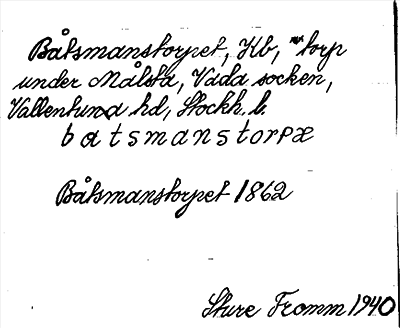 Båtsmanstorpet, Hb, torp
under Målsta, Vada socken,
Vallentuna hd, Stockh. l.
batsmanstorpæ
Båtsmanstorpet 1862
Sture Fromm 1940